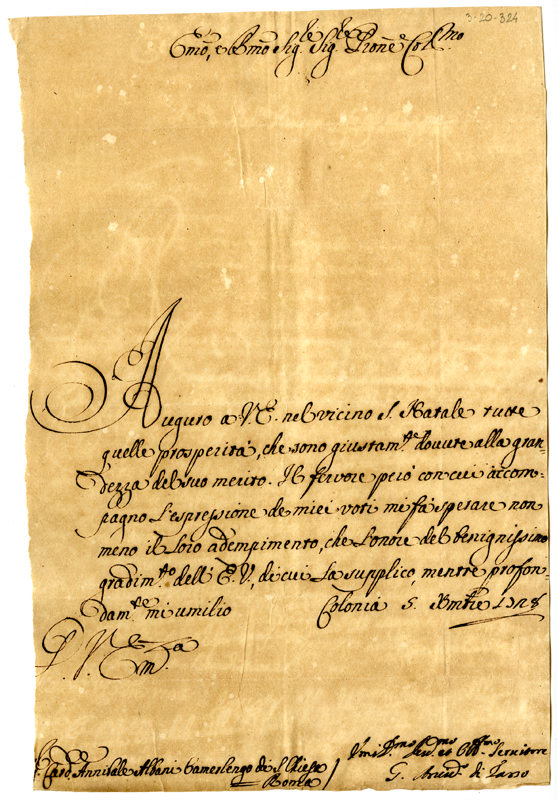 3-20-324
Emo, e Rmo Sig.re Sig.re Prone Colmo
Auguro a V.E. nel vicino S. Natale tutte
quelle prosperità, che sono giustam.te dovute alla gran=
dezza del suo merito. Il fervore però con cui accom=
pagno l'espressione de miei voti mi fà sperare non
meno il loro adempimento, che l'onore del benignissimo
gradim.to dell'E.V., di cui La supplico, mentre profon=
dam.te mi umilio Colonia 5. Xmbre
D. V. Em.za
Card. Annibale Albani Camerlengo di S. Chiesa
Roma
Um.mo Dev.mo et Obb.mo Servitore
G. di Tasso